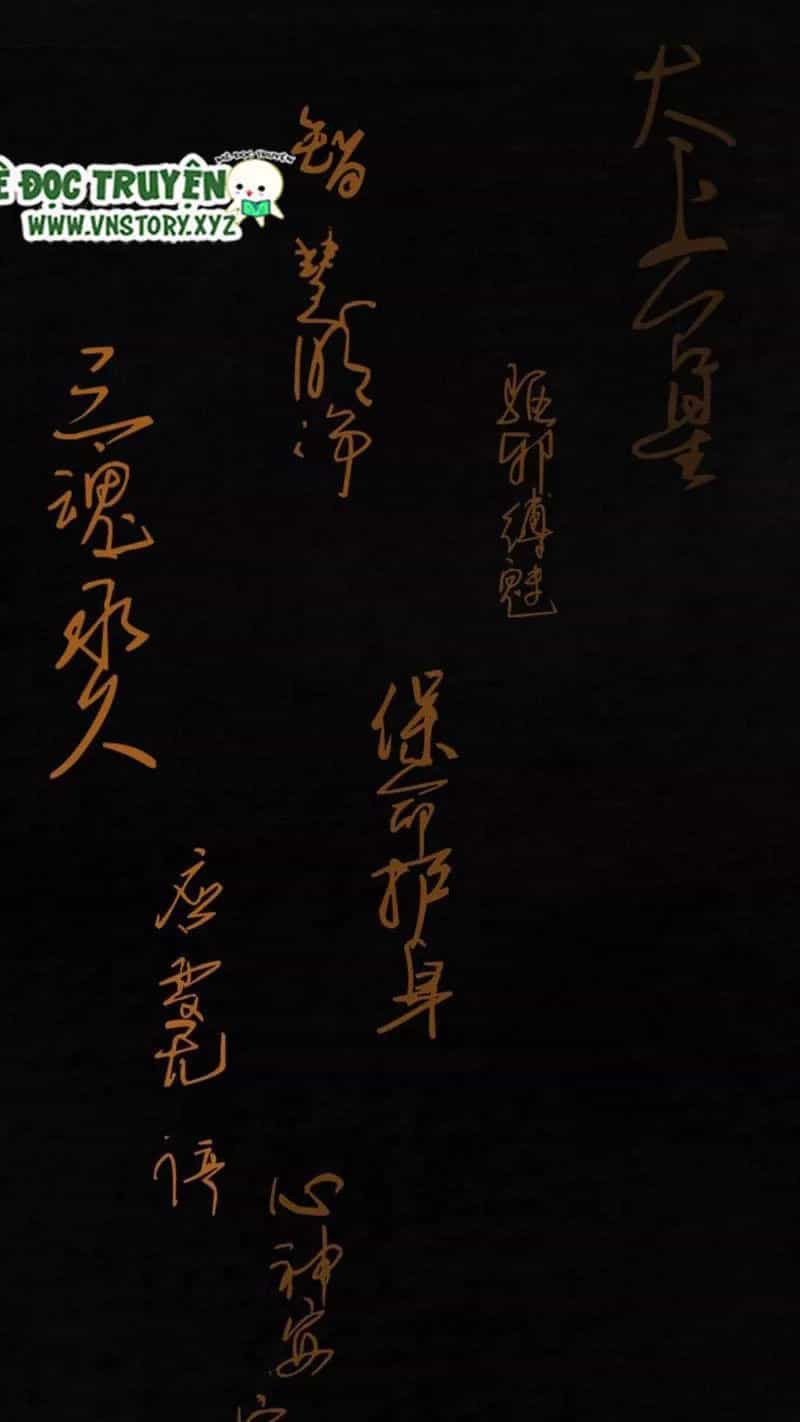 ê ĐỌC TRUYỆN
MÊ ĐỌC TRUYỆN
WWW.VNSTORY.XYZ
太上台星
驱邪缚魅
保命护身
智慧明净
心神安
应变无停
三魂永久